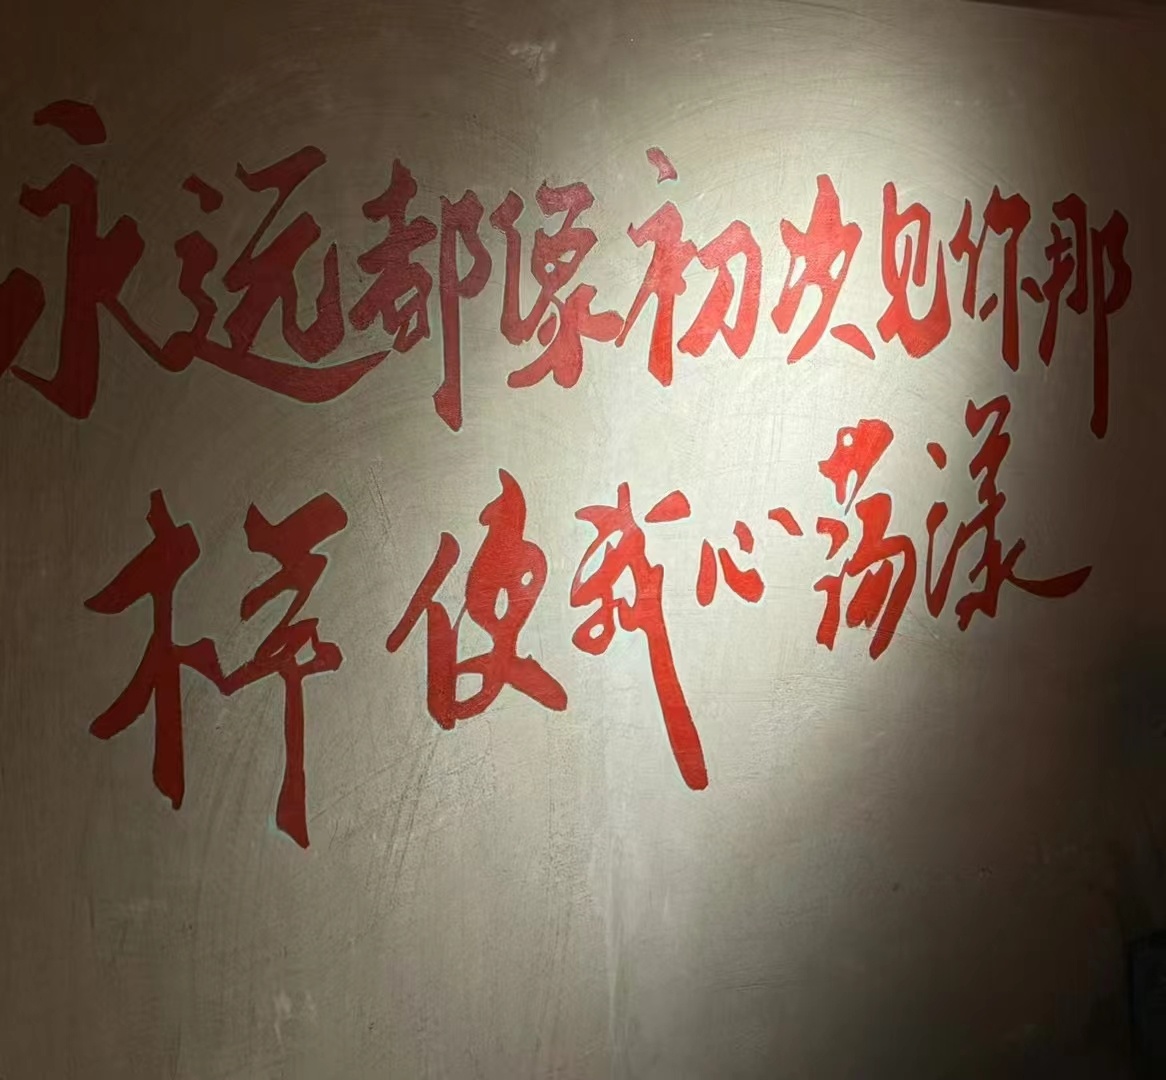 永远都像初次见你那
样使我心荡漾